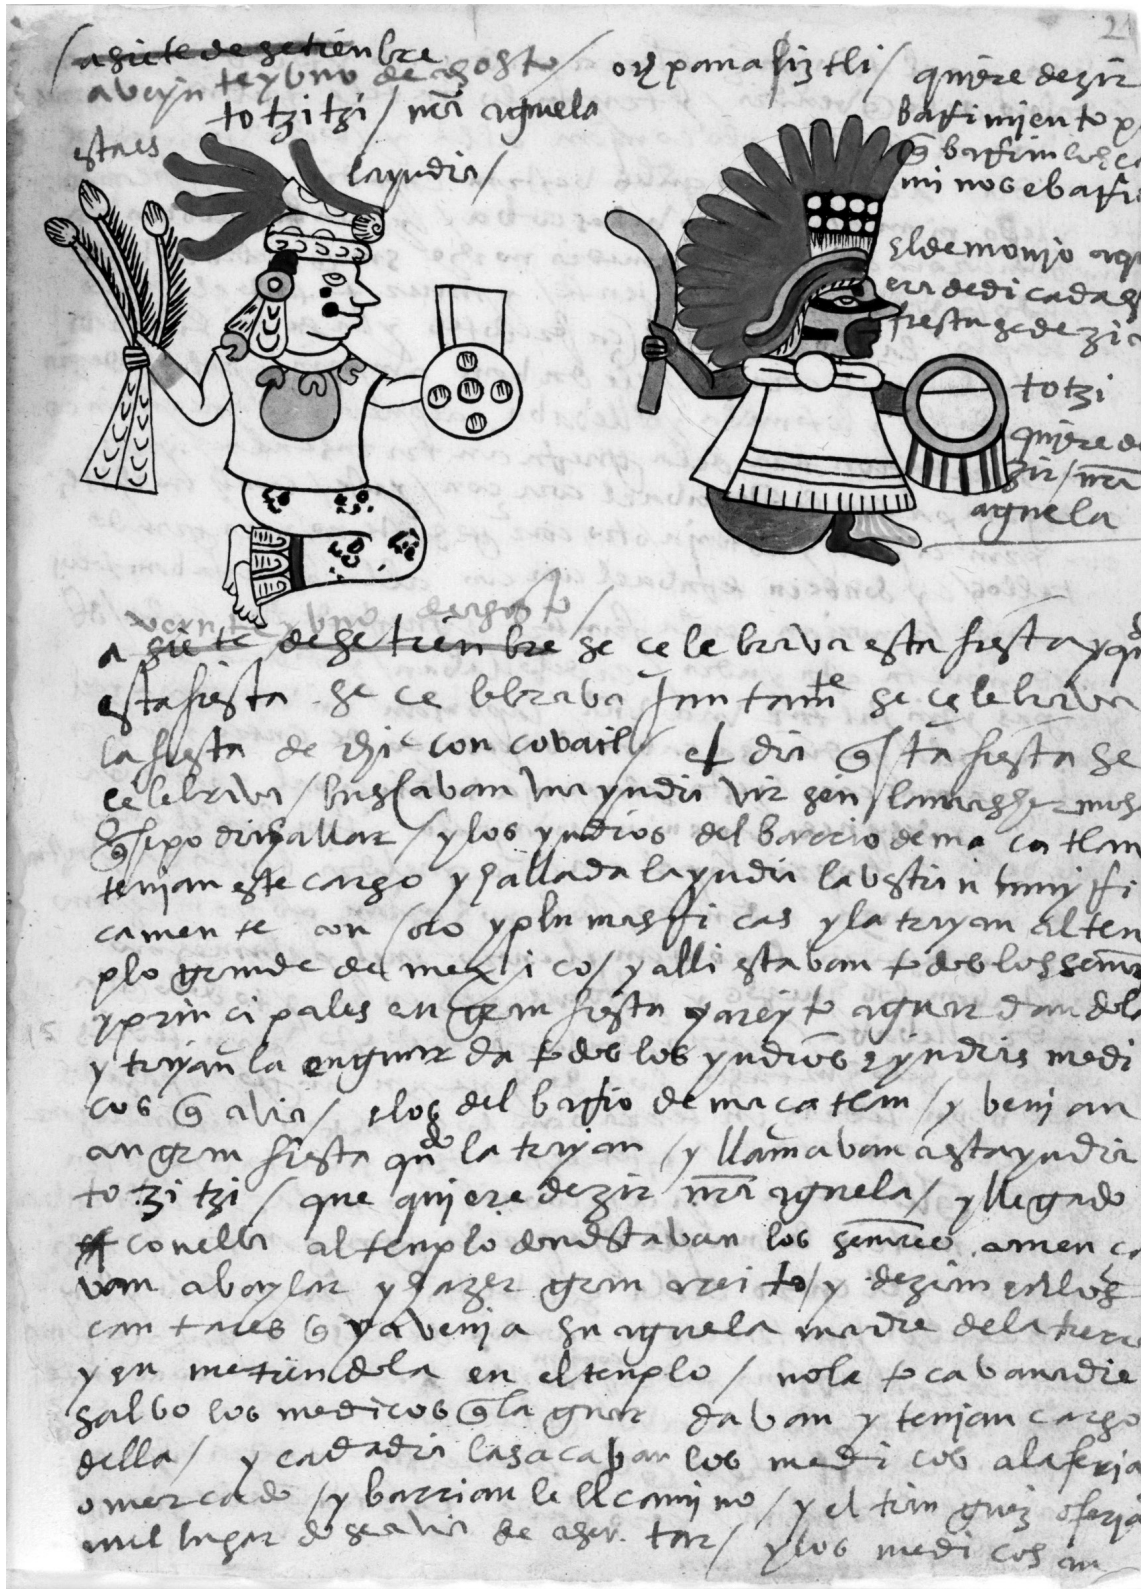 2
a siete de setienbre
a veyn te y vno de agosto / ochpanaliztli / quiere dezir
totzitzi / nra aguela
estaes
la yndia /
barrimiento p
q̃ barrian los ca
mi nos e barri
El demonio aqu
era dedicada es
fiesta se dezia
totzi
quiere de
zir / nra
aguela
veynte y vno de agosto /
a siete de setienbre se çele brava esta fiesta y qn
esta fiesta se ce lebrava Juntamte se çelebrava
la fiesta de chicon covatl / el dia q̃sta fiesta se
celebrava / buscavan vna yndia virgen la mas hermosa
q̃ se podia hallar / y los yndios del barrio de ma ca tlan
tenian este cargo y hallada la yndia la vestian mui fi
camente con oro y plumas rri cas y la trayan al ten
plo grande de mexico / y alli estavan todos los señr
y prin ci pales en gran fiesta y areyto aguardandola
y trayanla en guarda todos los yndios e yndias medi
cos q̃ avia / e los del barrio de macatlan / y venian
an gran fiesta qndo la trayan / y llamavan a esta yndia
totzi tzi / que quiere dezir nra aguela / y llegado
con ella al tenplo dondstavan los señres comenca
van a baylar y hazer gran areito / y dezian en los
can tares q̃ ya venia su aguela madre de la tierra
y en metiendola en el tenplo / no la tocava nadie
salvo los medicos q̃ la guar davan y tenian cargo
della / y cada dia la sacaban los medi cos a la feria
o mercado / y barrian le el camino / y el tian guiz o feria
nul lugar do se avia de asen tar / y los medi cos an